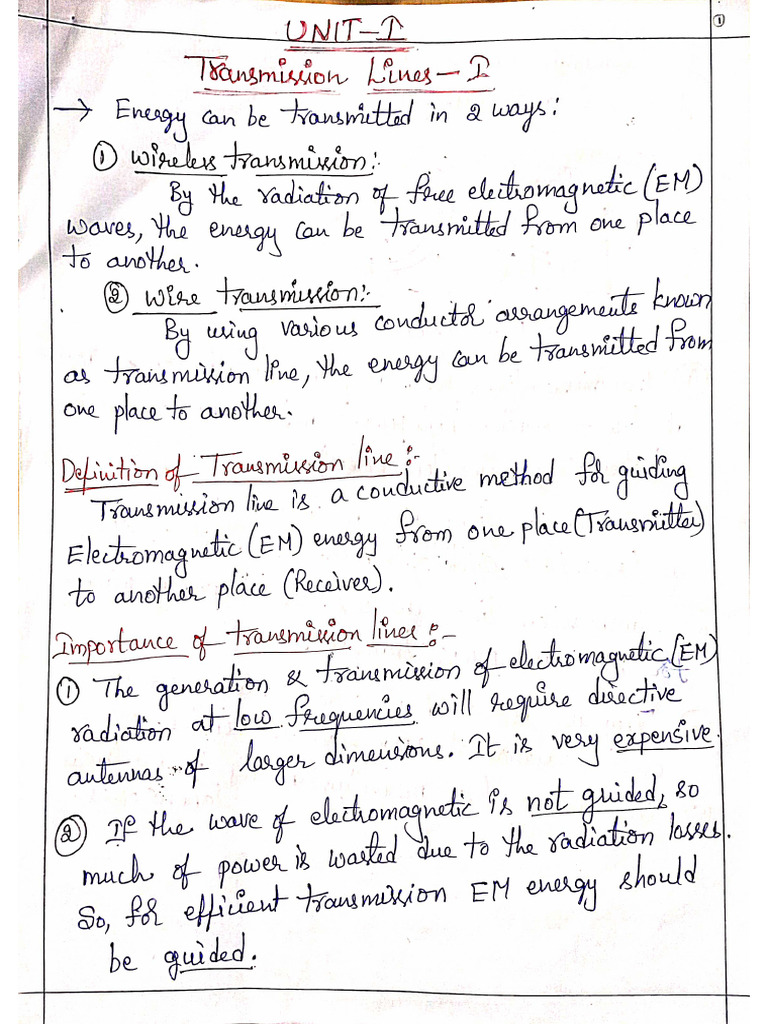 ①
UNIT-I
Transmission Lines-I
→ Energy can be transmitted in 2 ways:
① Wireless transmission:-
By the radiation of free electromagnetic (EM)
waves, the energy can be transmitted from one place
to another.
② Wire transmission:-
By using various conductor arrangements known
as transmission line, the energy can be transmitted from
one place to another.
Definition of Transmission line:-
Transmission line is a conductive method for guiding
Electromagnetic (EM) energy from one place (Transmitter)
to another place (Receiver).
Importance of transmission lines:-
① The generation & transmission of electromagnetic (EM)
radiation at low frequencies will require directive
antennas of larger dimensions. It is very expensive.
② If the wave of electromagnetic is not guided, so
much of power is wasted due to the radiation losses.
So, for efficient transmission EM energy should
be guided.